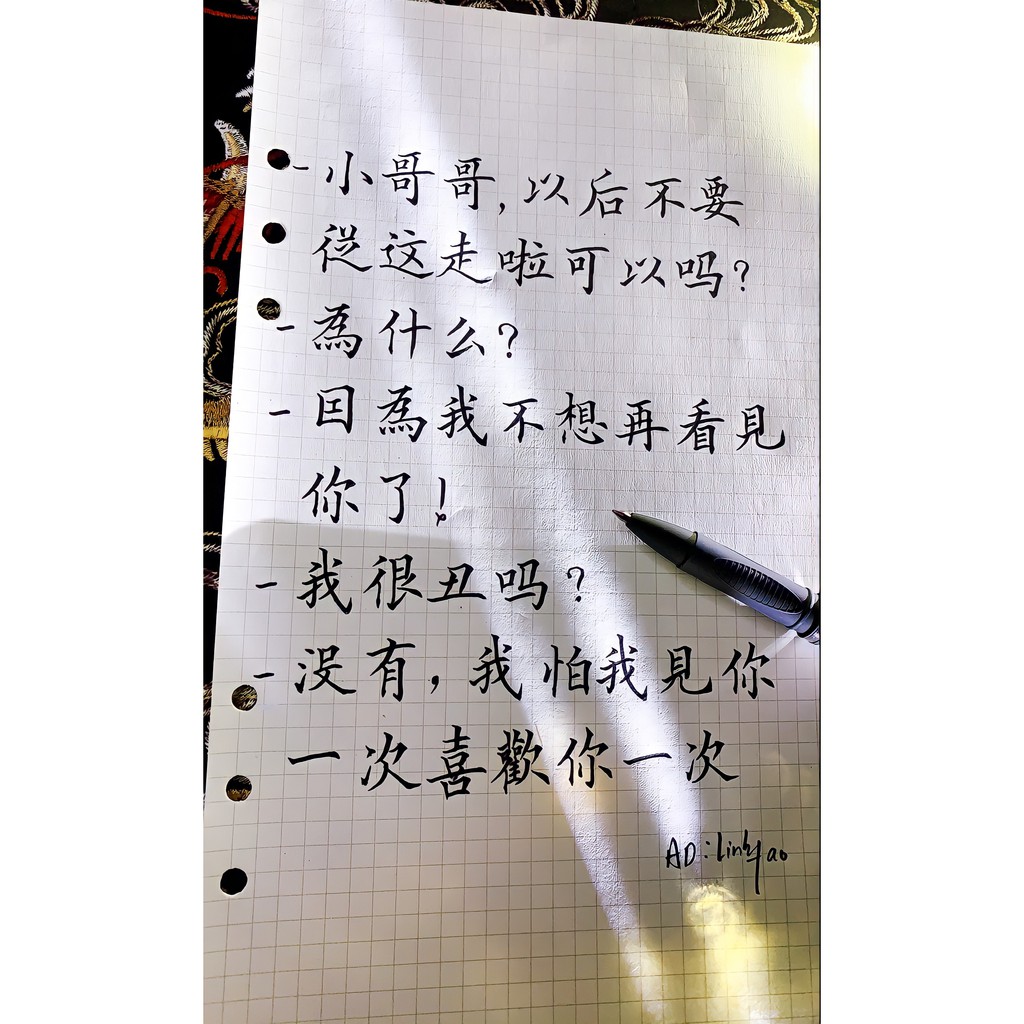 - 小哥哥,以后不要
從这走啦可以吗?
- 為什么?
- 因為我不想再看見
你了!
- 我很丑吗?
- 没有,我怕我見你
一次喜歡你一次
AD:Linhyao